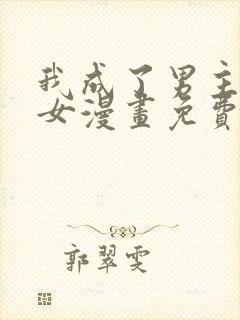 我成了男主
女漫畫免費
郭翠雯